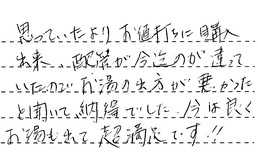 思っていたよりお値打ちに購入
出来、配管が今迄のが違って
いたのでお湯の出方が悪かった
と聞いて納得でした 今は良く
お湯も出て超満足です!!